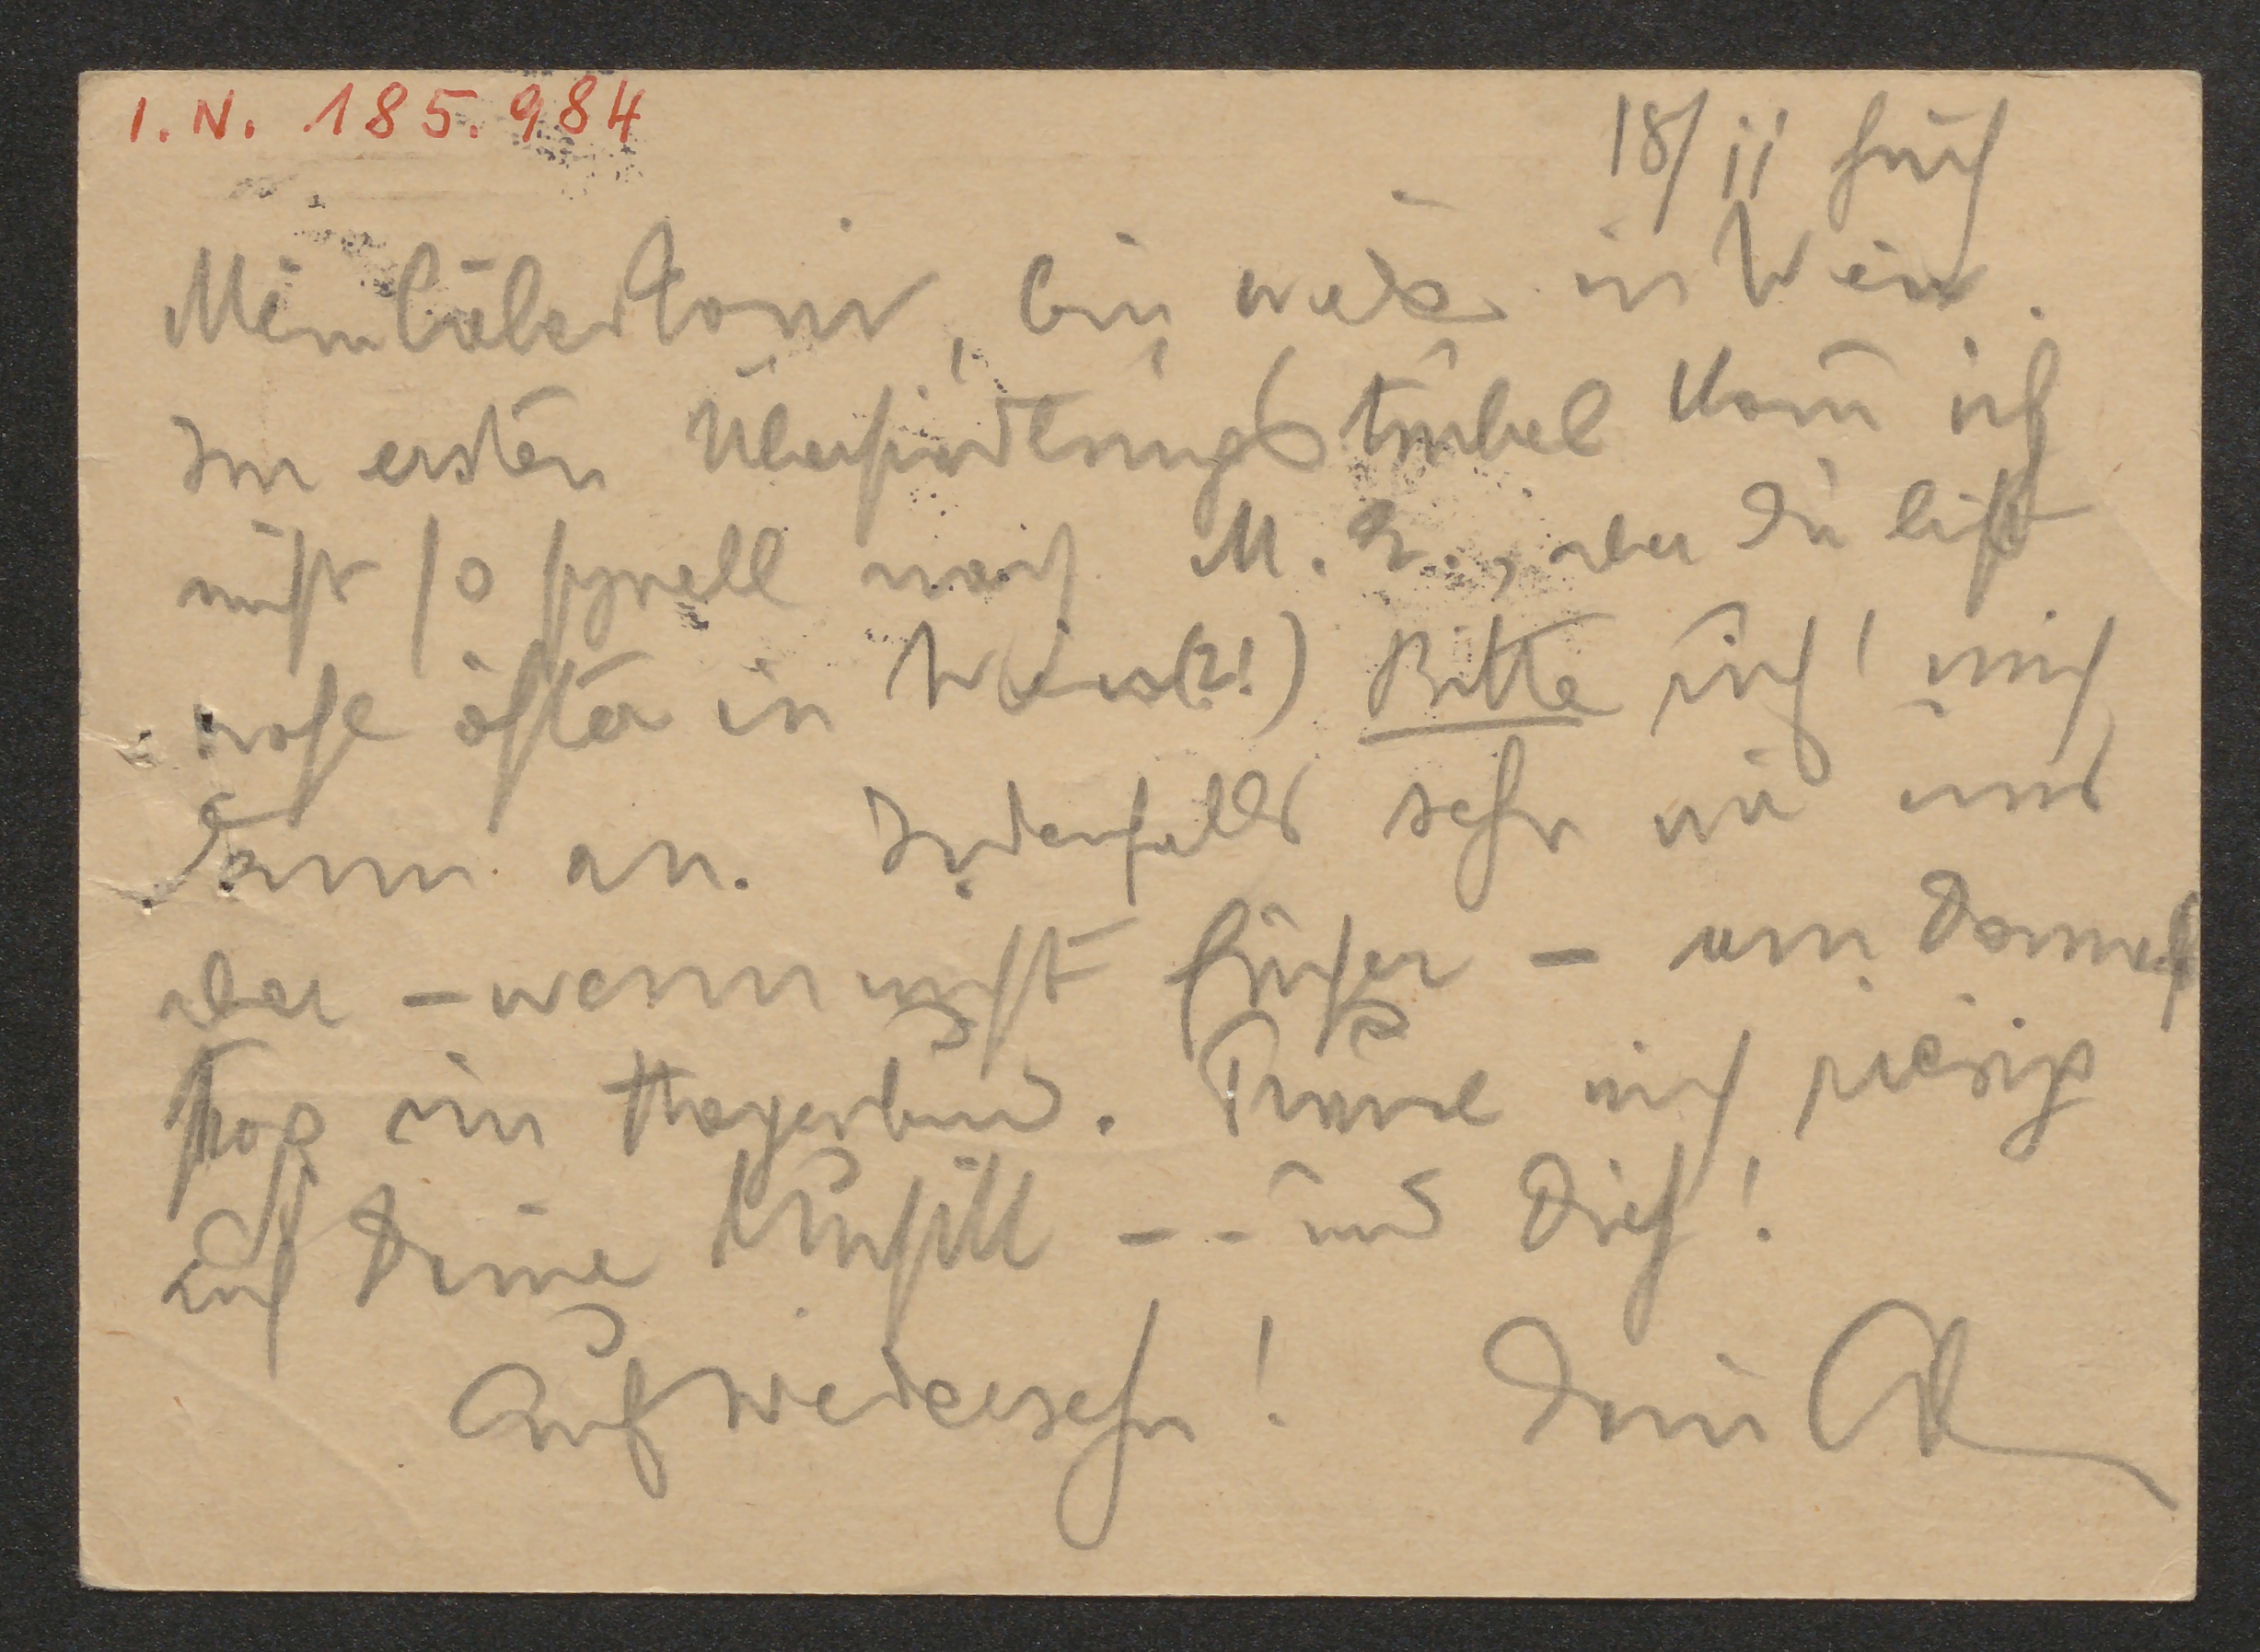 I.N. 185.984
18/11 früh
Mein lieber Tom, bin wieder in Wien.
Im ersten Übersiedlungstrubel kom̄ ich
nicht so schnell nach M. E., aber Du bist
wohl öfter in Wien(?!) Bitte ruf' mich
dann an. Jedenfalls sehn wir uns
aber – wenn nicht früher – am Donnerstag
im Hagenbund. Freue mich riesig
auf Deine – – und Dich!
Auf Wiedersehn! Dein